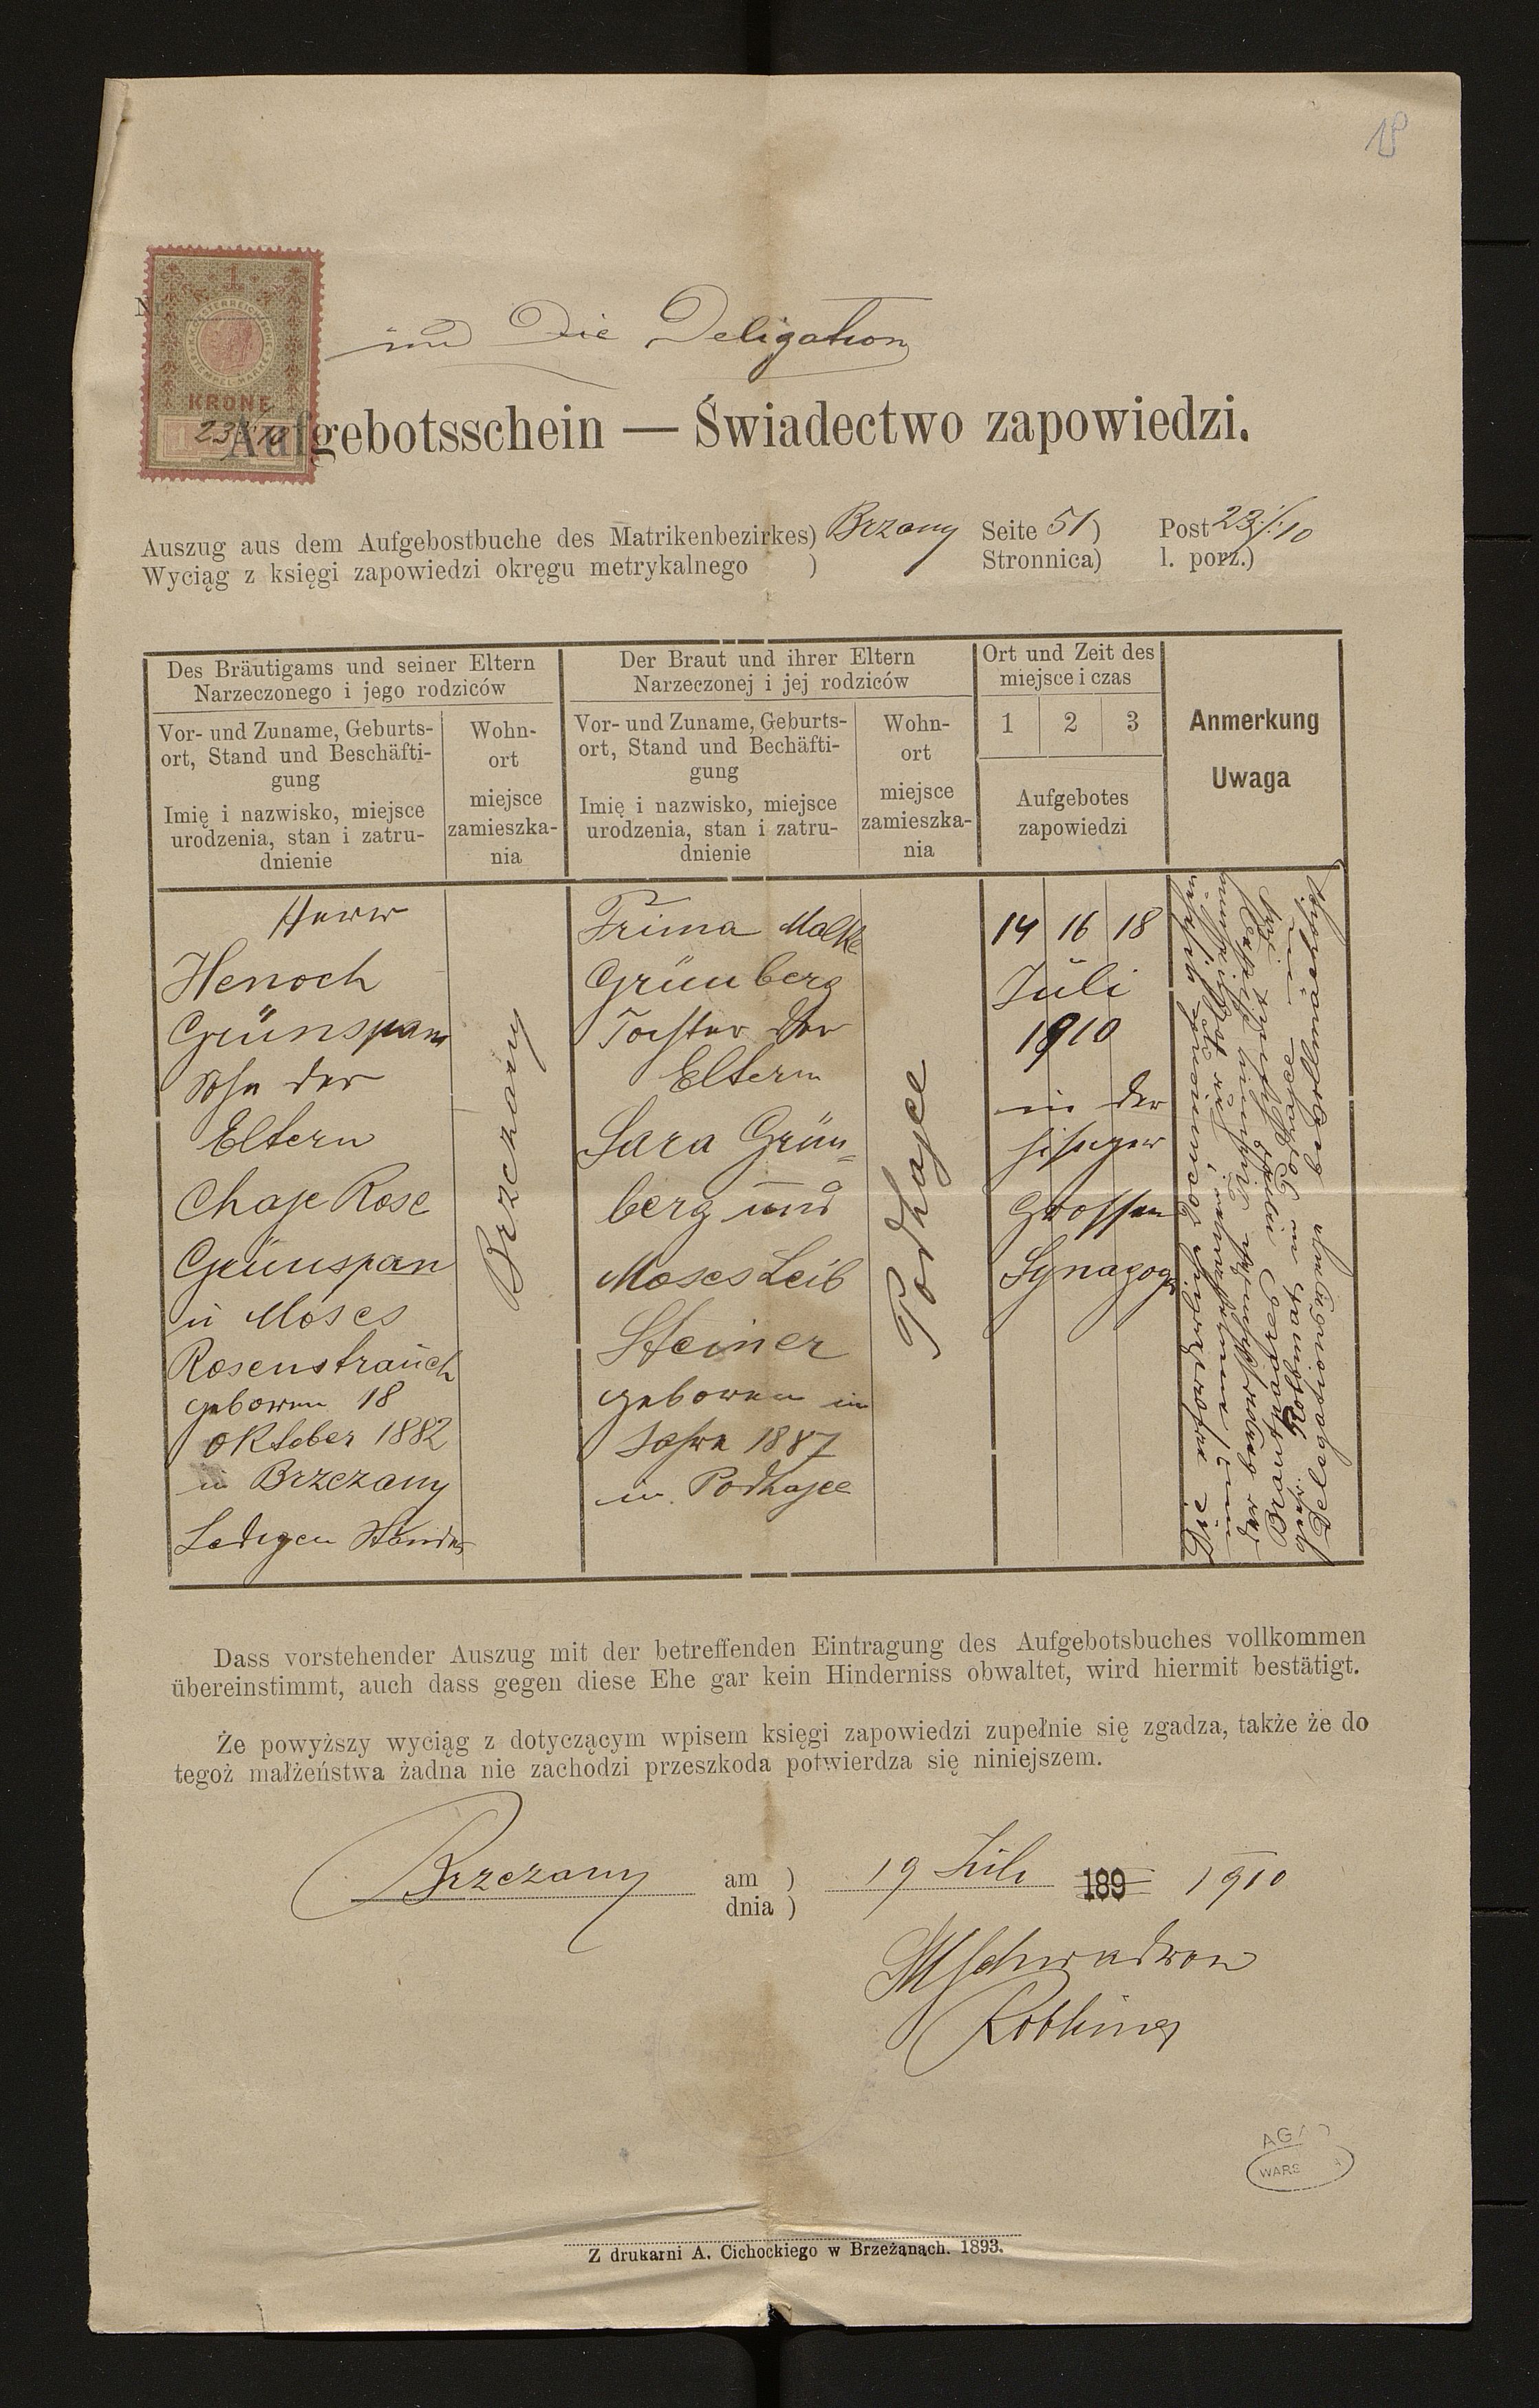 18
Nr.
1
KRONE
1
23/ 10
und Die Deligation
Aufgebotsschein — Świadectwo zapowiedzi.
Auszug aus dem Aufgebostbuche des Matrikenbezirkes) Brzany Seite 51) Post 23/:10
Wyciąg z księgi zapowiedzi okręgu metrykalnego ) Stronnica) l. porz.)
Des Bräutigams und seiner Eltern
Narzeczonego i jego rodziców
Vor- und Zuname, Geburts-
ort, Stand und Beschäfti-
gung
Imię i nazwisko, miejsce
urodzenia, stan i zatru-
dnienie
Wohn-
ort
miejsce
zamieszka-
nia
Der Braut und ihrer Eltern
Narzeczonej i jej rodziców
Vor- und Zuname, Geburts-
ort, Stand und Bechäfti-
gung
Imię i nazwisko, miejsce
urodzenia, stan i zatru-
dnienie
Wohn-
ort
miejsce
zamieszka-
nia
Ort und Zeit des
miejsce i czas
1 2 3
Aufgebotes
zapowiedzi
Anmerkung
Uwaga
Herr
Henoch
Grünspan
Sohn der
Eltern
Chaje Rose
Grünspan
u Moses
Rosenstrauch
geboren 18
Oktober 1882
in Brzezany
Ledigen Standes
Brzezany
Frima Malke
Grünberg
Tochter der
Eltern
Sara Grün-
berg und
Moses Leib
Steiner
geboren im
Jahre 1887
in Podhajce
Podhajce
14 16 18
Juli
1910
in der
hisiger
Grossen
Synagoge
Die
der
Brautpaares
Rabinat in Podhajce
Delegazionsgemäß
Dass vorstehender Auszug mit der betreffenden Eintragung des Aufgebotsbuches vollkommen
übereinstimmt, auch dass gegen diese Ehe gar kein Hinderniss obwaltet, wird hiermit bestätigt.
Że powyższy wyciąg z dotyczącym wpisem księgi zapowiedzi zupełnie się zgadza, także że do
tegoż małżeństwa żadna nie zachodzi przeszkoda potwierdza się niniejszem.
Brzezany am ) 19 Juli 189 1910
dnia )
Schwadron
Rabbiner
AGAD
WARS A
Z drukarni A. Cichockiego w Brzeżanach. 1893.